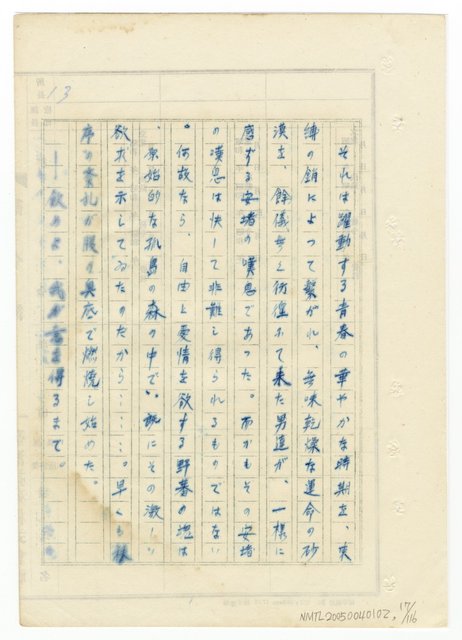 それは躍動する青春の華やかな時期を、束
縛の鎖によって繋がれ、無味乾燥な運命の砂
漠を、餘儀なく彷徨ふて来た男達が、一様に
感ずる安堵の嘆息であった。而かもその安堵
の嘆息は決して非難し得られるものではない
。何故なら、自由と愛情を欲する野暮の塊は
、原始的な孤島の森の中で、既にその激しい
欲求を示してゐたのだから……。早くも秩
序の紊乱が腹の奥底で燃焼し始めた。
――飲めよ、我が
を得るまで。
13
NMTL20050040102, 17/116